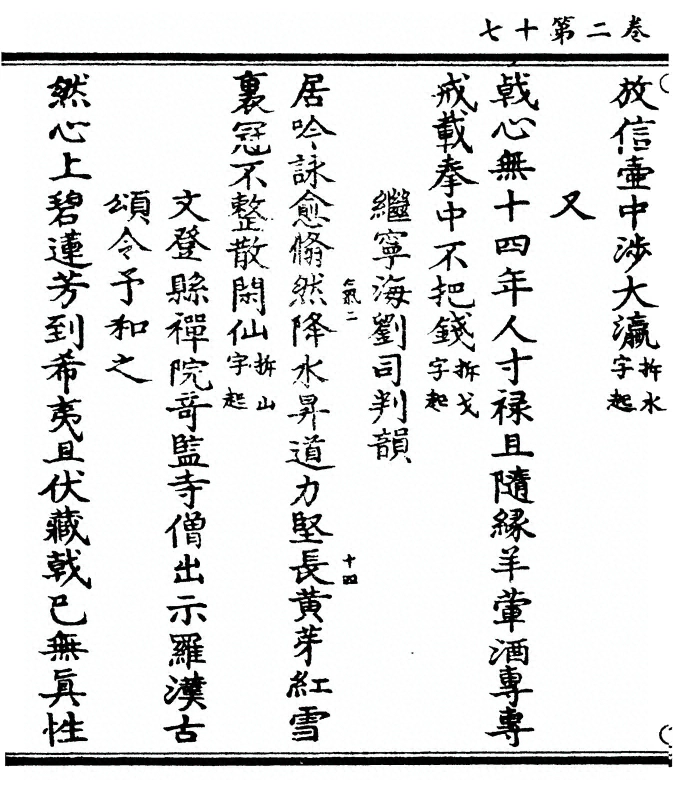 卷二第十七
放信壺中涉大瀛拆水字起
又
戟心無十四年人寸禄且隨緣羊葷酒專專
戒載拳中不把錢拆戈字起
繼寧海劉司判韻
居吟詠愈翛然降水昇道力堅長黃芽紅雪
氣二
十四
裏冠不整散閑仙拆山字起
文登縣禪院哥監寺僧出示羅漢古
頌令予和之
然心上碧蓮芳到希夷且伏藏戟已無眞性